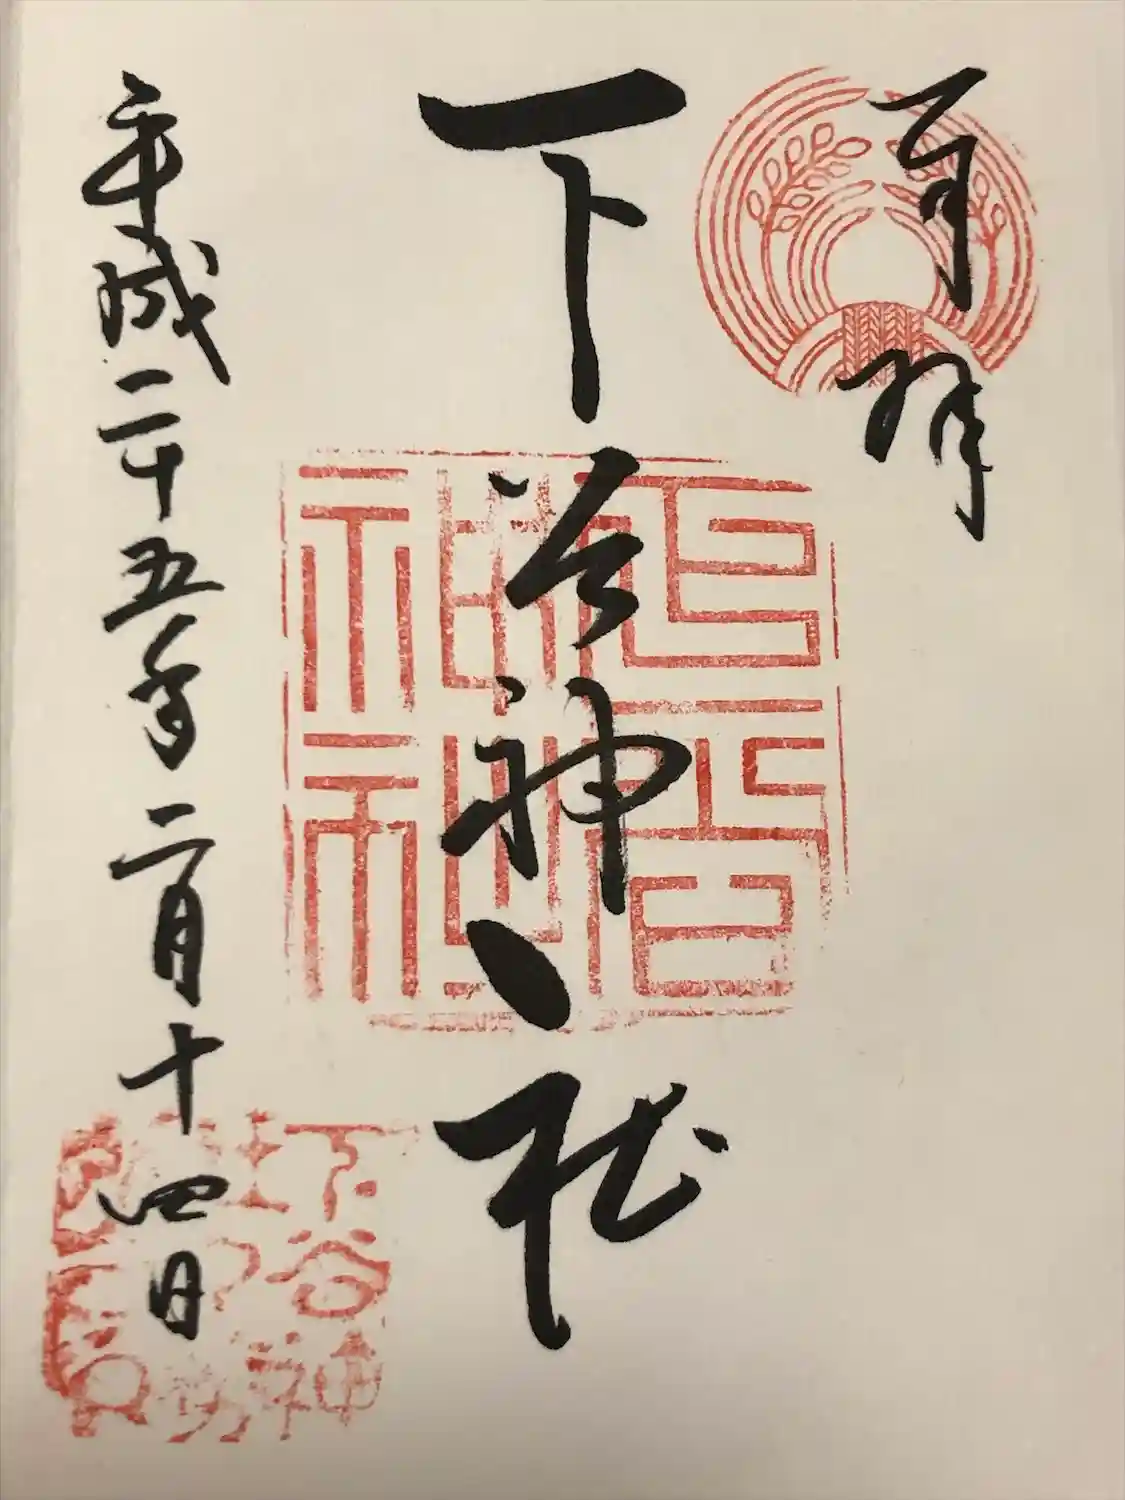 百拝
下谷神社
平成二十五年二月十四日
下谷
神社
下谷神